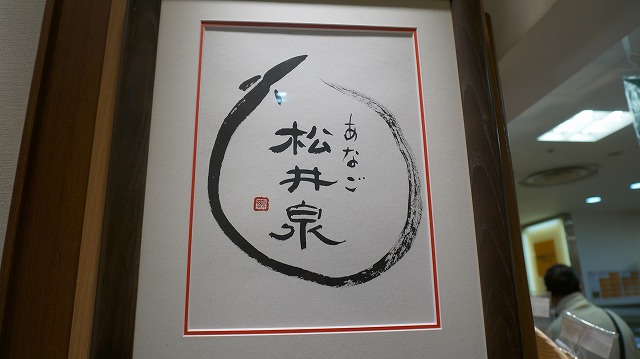 あなご
松井泉